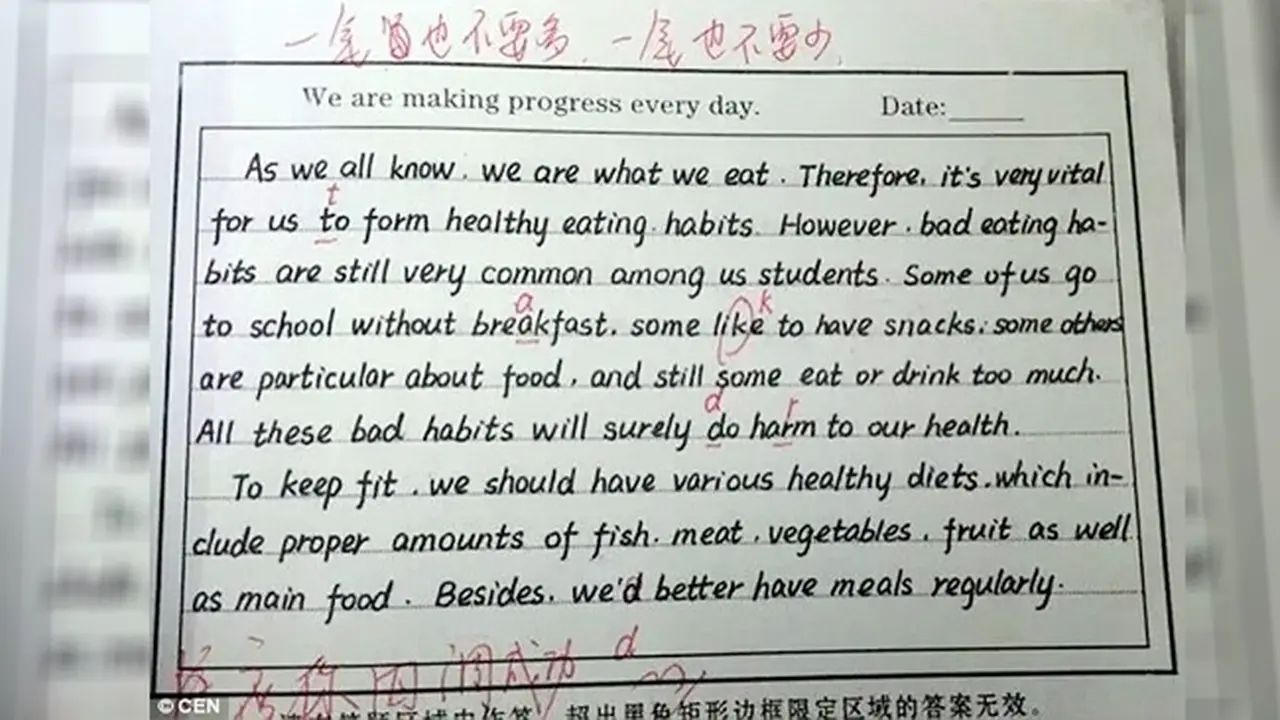 一尾皆也不要多,一尾也不要少,
We are making progress every day. Date:
As we all know, we are what we eat. Therefore, it's very vital
t
for us to form healthy eating habits. However, bad eating ha-
bits are still very common among us students. Some of us go
a k
to school without breakfast, some like to have snacks, some others
are particular about food, and still some eat or drink too much.
d r
All these bad habits will surely do harm to our health.
To keep fit, we should have various healthy diets, which in-
clude proper amounts of fish, meat, vegetables, fruit as well
as main food. Besides, we'd better have meals regularly.
你 成功 d
© CEN
超出黑色矩形边框限定区域的答案无效。